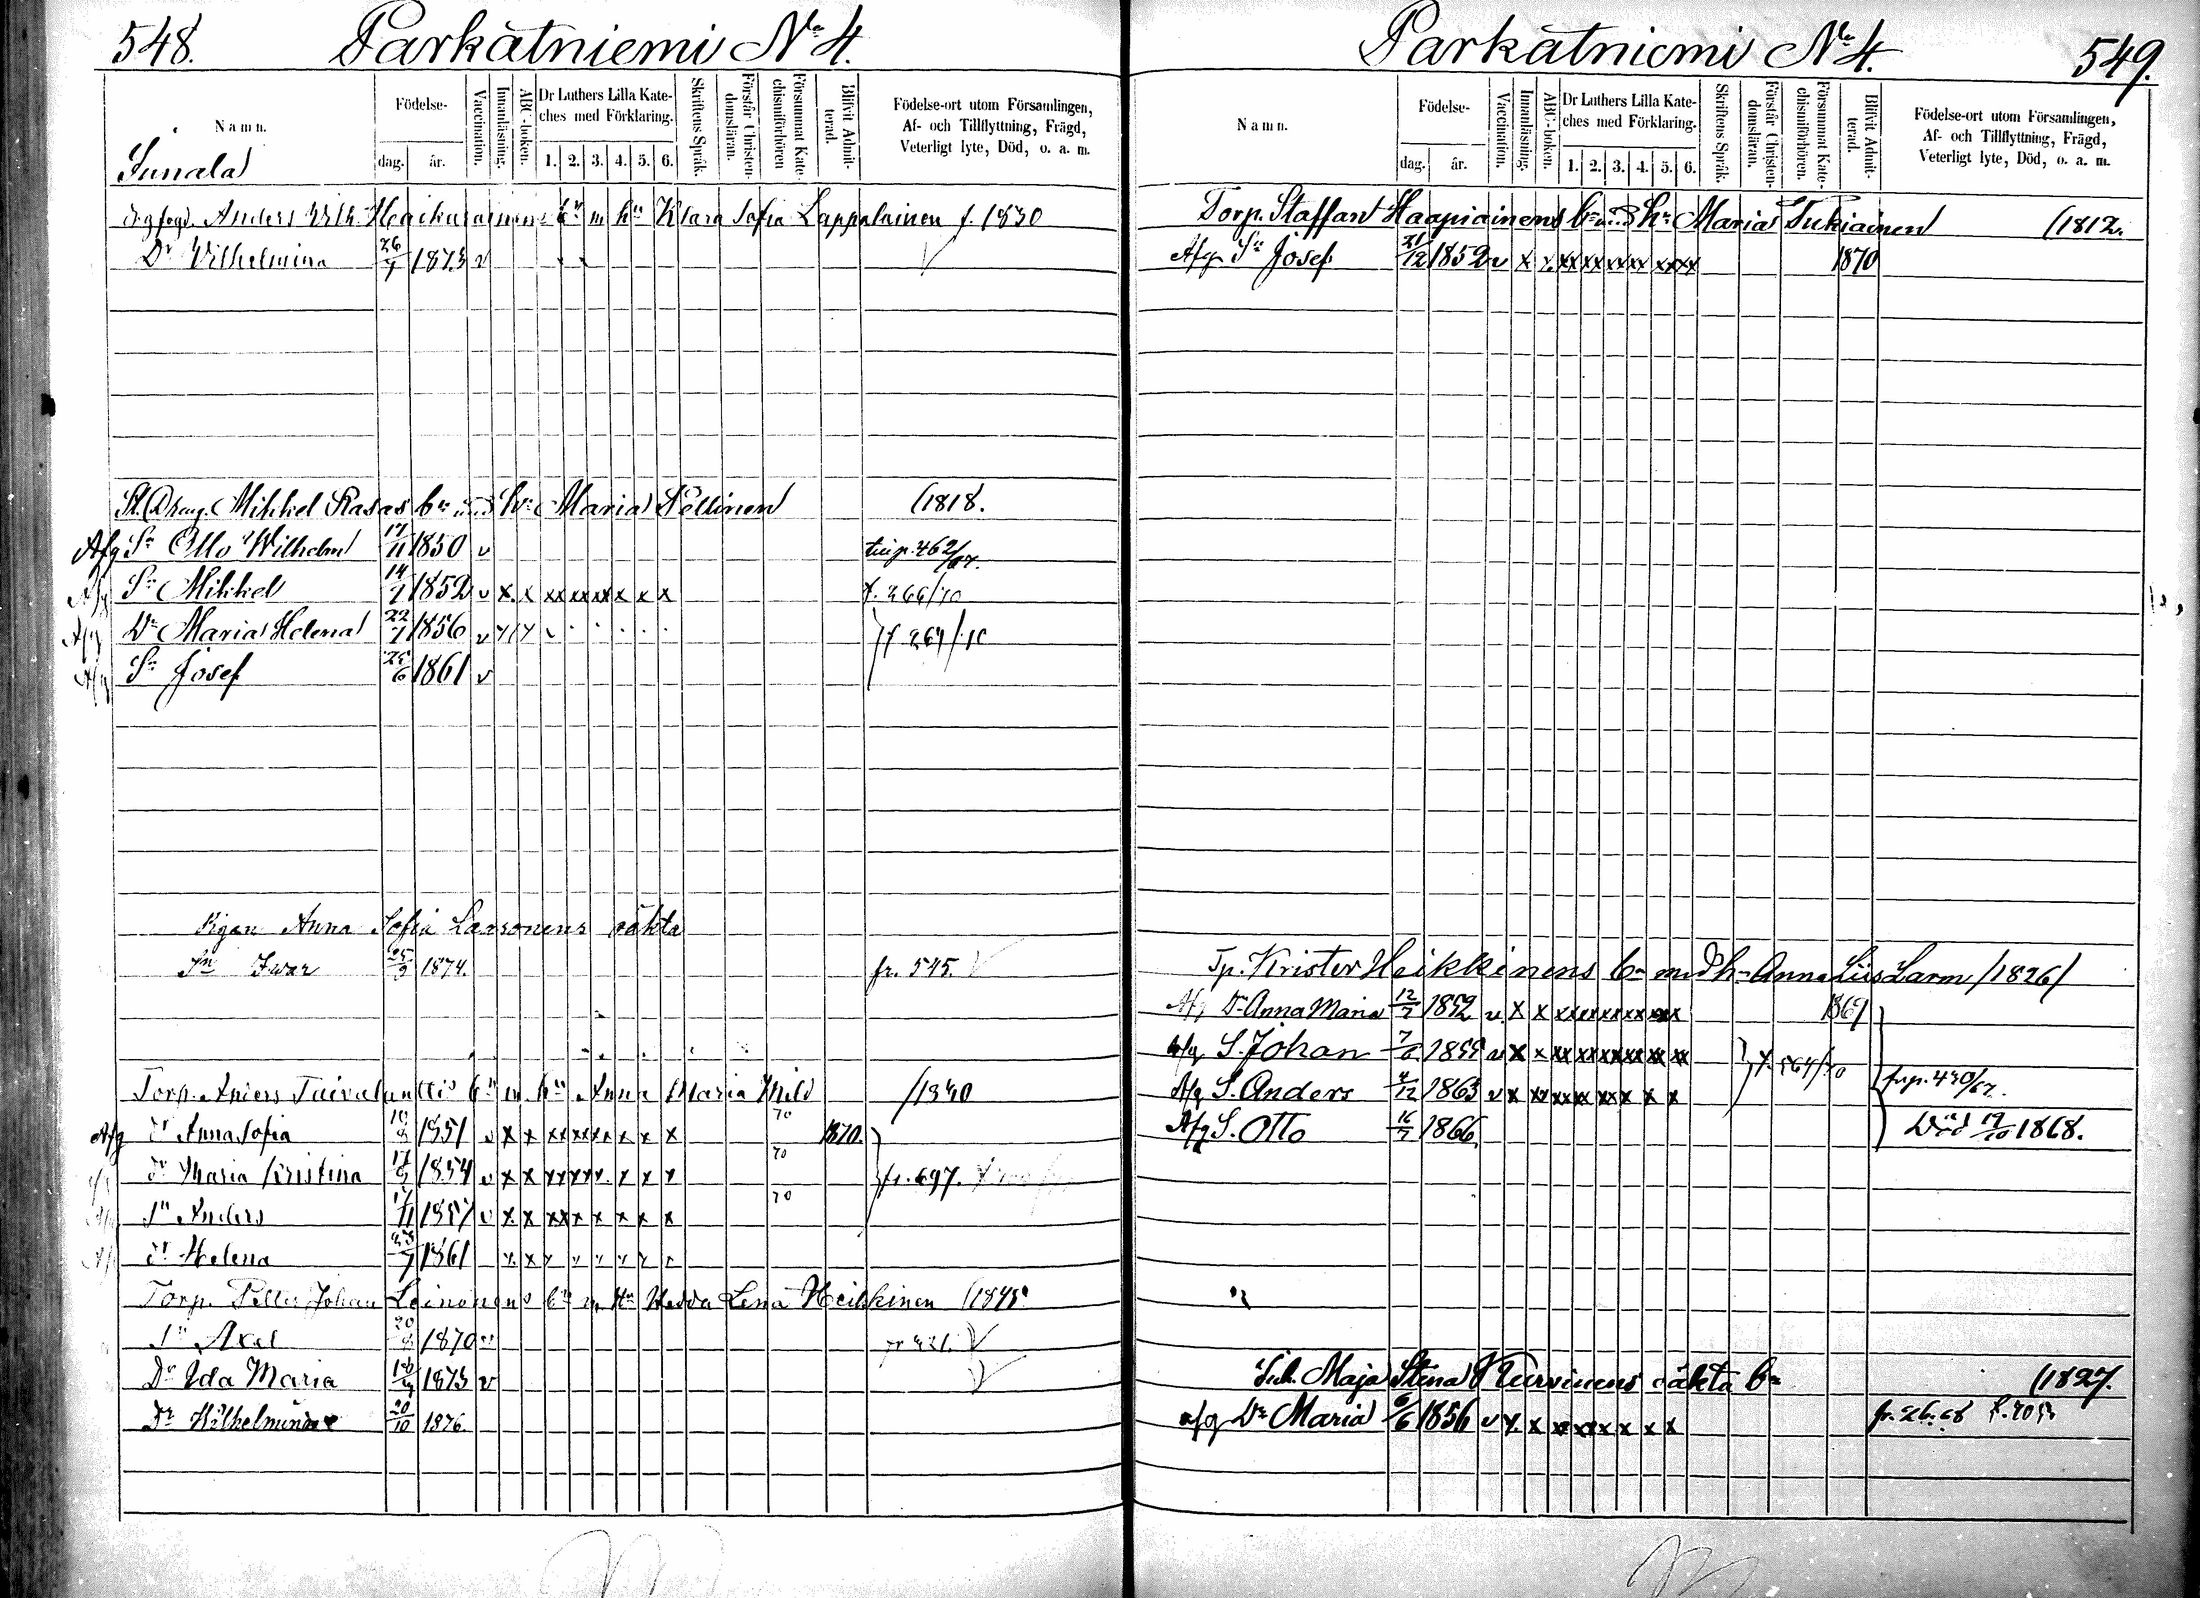 548. Parkatniemi No 4.
Namn.
Födelse-
dag. år.
Vaccination.
Innanläsning.
ABC-boken.
Dr Luthers Lilla Kate-
ches med Förklaring.
1. 2. 3. 4. 5. 6.
Skriftens Språk.
Förstår Christen-
domsläran.
Försummat Kate-
chismiförhören
Blifvit Admit-
terad.
Födelse-ort utom Församlingen,
Af- och Tillflyttning, Frägd,
Veterligt lyte, Död, o. a. m.
Junala
Anders Wilh. Heikurainens bn m hu Klara Sofia Lappalainen f. 1830
Dr Vilhelmina 26/7 1873 v
St. Drag. Mikkel Rasas bn med hu Maria Pellinen (1818.
Afg Sn Otto Wilhelm 17/11 1850 v tui p. 462/67.
Afg Sn Mikkel 14/7 1852 v x x xx xx xx x x x f. 266/70
Afg Dr Maria Helena 22/7 1856 v
Afg Sn Josef 25/6 1861 v
Pigan Anna Sofia Lassonens oäkta
Sn Iwar 25/9 1874. fr. 545. V
Torp. Anders bn m hu Anna Maria Mild /1830
Afg dr Anna Sofia 1851 v x x xx xx x x x x 70 1870.
dr Maria Kristina 17 1854 v x x 70 fr. 697.
Sn Anders 17/11 1857 v x x xx x x x x x 70
dr Helena 1861
Torp. Petter Johan Leinonens bn m Hu Hedda Lena Heikkinen (1845
Sn Axel 20 1870 v
Dr Ida Maria 1873 v
Dr Wilhelmina 20/10 1876.
Parkatniemi No 4. 549.
Namn.
Födelse-
dag. år.
Vaccination.
Innanläsning.
ABC-boken.
Dr Luthers Lilla Kate-
ches med Förklaring.
1. 2. 3. 4. 5. 6.
Skriftens Språk.
Förstår Christen-
domsläran.
Försummat Kate-
chismiförhören.
Blifvit Admit-
terad.
Födelse-ort utom Församlingen,
Af- och Tillflyttning, Frägd,
Veterligt lyte, Död, o. a. m.
Torp. Staffan Haapiainens bn med hu Maria Tukiainen (1812.
Afg Sn Josef 21/12 1852 v x x xx xx xx xx xx xx 1870
Tp. Krister Heikkinens bn med hu Anna Liis Larm /1826/
Afg Dr Anna Maria 12/7 1852 v x x xx xx xx xx xx x 1869
Afg S. Johan 7/6 1855 v x x xx xx xx xx xx xx f. 564/70
Afg S. Anders 4/12 1863 v x xx xx xx xx x x x fr p. 430/67.
Afg S. Otto 16/7 1866. Död 19/10 1868.
Inh. Maja Stina Kurvinens oäkta bn (1827.
afg Dr Maria 6/6 1856 v x x